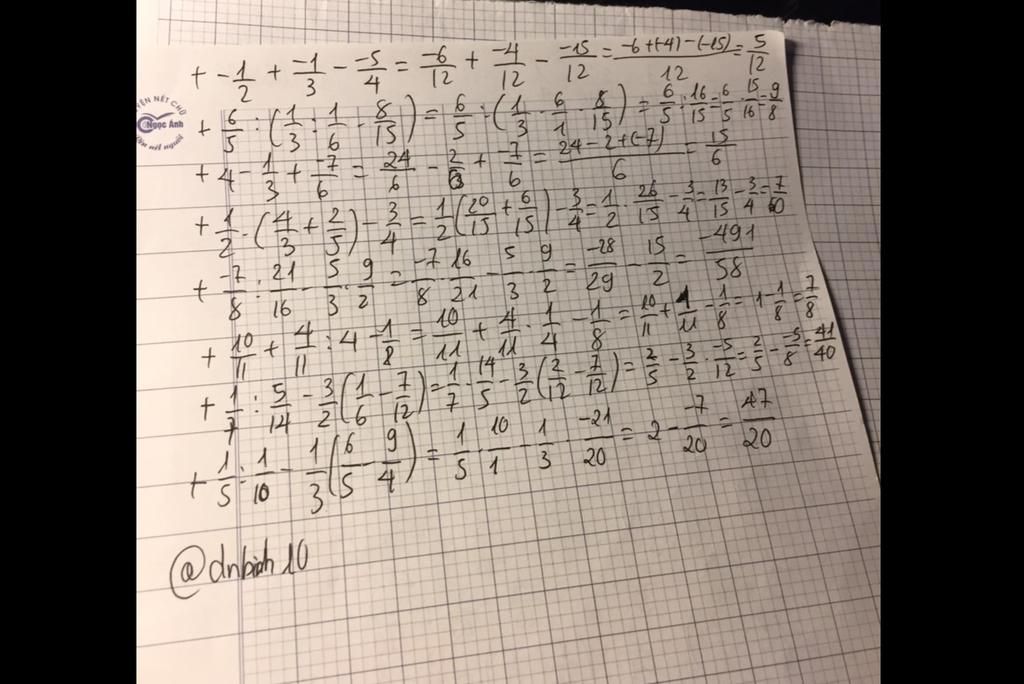 + -1/2 + -1/3 - -5/4 = -6/12 + -4/12 - -15/12 = -6+(-4)-(-15)/12 = 5/12
+ 6/5 : (1/3 : 1/6 · 8/15) = 6/5 : (1/3 · 6/1 · 8/15) = 6/5 : 16/15 = 6/5 · 15/16 = 9/8
+ 4 - 1/3 + -7/6 = 24/6 - 2/6 + -7/6 = 24-2+(-7)/6 = 15/6
+ 1/2 · (4/3 + 2/5) - 3/4 = 1/2 (20/15 + 6/15) - 3/4 = 1/2 · 26/15 - 3/4 = 13/15 - 3/4 = 7/60
+ -7/8 : 21/16 - 5/3 · 9/2 = -7/8 · 16/21 - 5/3 · 9/2 = -28/29 - 15/2 = -491/58
+ 10/11 + 4/11 : 4 - 1/8 = 10/11 + 4/11 · 1/4 - 1/8 = 10/11 + 1/11 - 1/8 = 1 - 1/8 = 7/8
+ 1/7 : 5/14 - 3/2 (1/6 - 7/12) = 1/7 · 14/5 - 3/2 (2/12 - 7/12) = 2/5 - 3/2 · -5/12 = 2/5 - -5/8 = 41/40
+ 1/5 : 1/10 - 1/3 (6/5 - 9/4) = 1/5 · 10/1 - 1/3 · -21/20 = 2 - -7/20 = 47/20
@dnbinh10
Ngọc Ánh